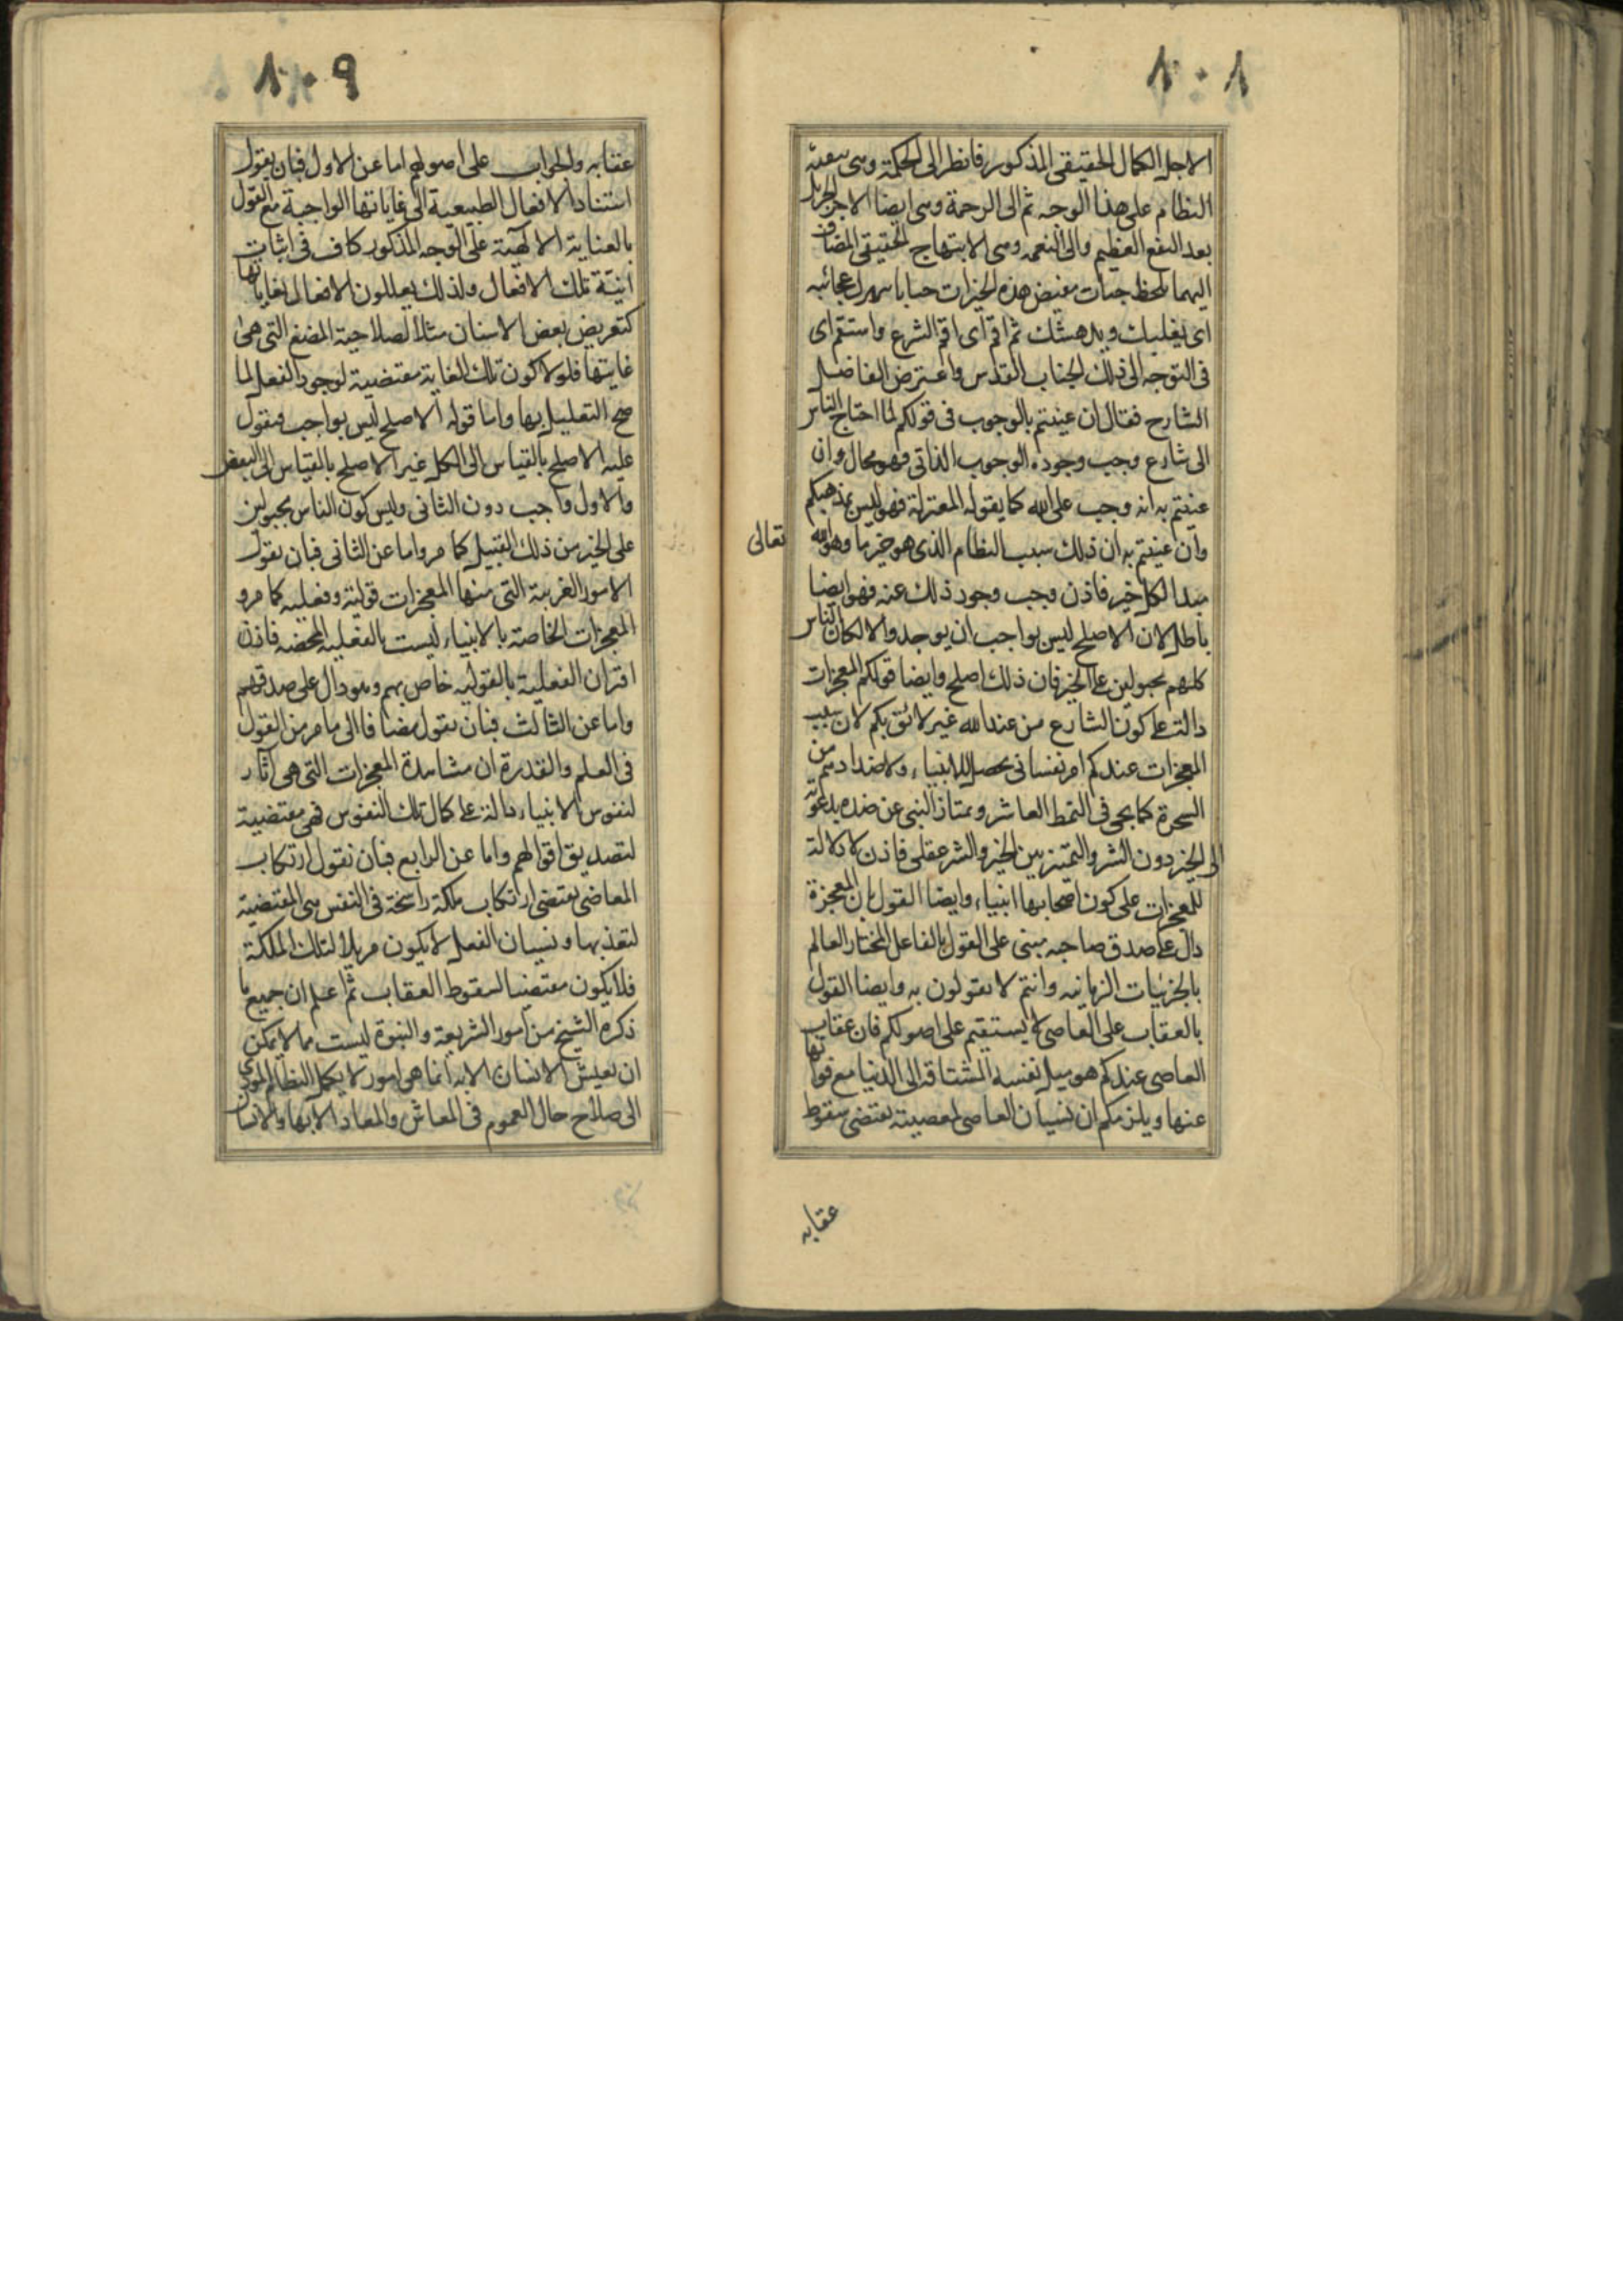 ٨٠٨
الاجل الكمال الحقيقى المذكور فانظر الى الحكمة وهى تبقية
النظام على هذا الوجه ثم الى الرحمة وهى ايضا الاجر الجزيل
بعد النفع العظيم والى النعمة وهى الابتهاج الحقيقى المضاف
اليهما تلحظ جناب مفيض هذه الخيرات جنابا تبهرك عجائبه
اى تغلبك ويدهشك ثم اقم اى اقم الشرع واستقم اى
فى التوجه الى ذلك الجناب القدس واعترض الفاضل
الشارح فقال ان عنيتم بالوجوب فى قولكم لما احتاج الناس
الى شارع وجب وجوده الوجوب الذاتى فهو محال وان
عنيتم به انه وجب على الله كما يقوله المعتزلة فهو ليس بمذهبكم
وان عنيتم به ان ذلك سبب النظام الذى هو خير ما وهو الله تعالى
مبدا لكل خير فاذن وجب وجود ذلك عنه فهو ايضا
باطل لان الاصلح ليس بواجب ان يوجد والا لكان الناس
كلهم مجبولين على الخير فان ذلك اصلح وايضا قولكم المعجزات
دالة على كون الشارع من عند الله غير لائق بكم لان سبب
المعجزات عندكم امر نفسانى يحصل للانبياء ولاضدادهم من
السحرة كما يجئ فى النمط العاشر ويمتاز النبى عن ضده بدعوته
الى الخير دون الشر والتميز بين الخير والشر عقلى فاذن لا دلالة
للمعجزات على كون اصحابها انبياء وايضا القول بان المعجزة
دال على صدق صاحبه مبنى على القول بالفاعل المختار العالم
بالجزئيات الزمانية وانتم لا تقولون به وايضا القول
بالعقاب على العاصى لا يستقيم على اصولكم فان عقاب
العاصى عندكم هو ميل نفسه المشتاقة الى الدنيا مع فواتها
عنها ويلزمكم ان نسيان العاصى لمعصيته يقتضى سقوط
عقابه
٨٠٩
عقابه والجواب على اصولهم اما عن الاول فبان يقول
استناد الافعال الطبيعية الى غاياتها الواجبة مع القول
بالعناية الالهية على الوجه المذكور كاف فى اثبات
انية تلك الافعال ولذلك يعللون الافعال بغاياتها
كتعريض بعض الاسنان مثلا لصلاحية المضغ التى هى
غايتها فلولا كون تلك الغاية مقتضية لوجود الفعل لما
صح التعليل بها واما قوله الاصلح ليس بواجب فنقول
عليه الاصلح بالقياس الى الكل غير الاصلح بالقياس الى البعض
والاول واجب دون الثانى وليس كون الناس مجبولين
على الخير من ذلك القبيل كما مر واما عن الثانى فبان نقول
الامور الغريبة التى منها المعجزات قولية وفعلية كما مر و
المعجزات الخاصة بالانبياء ليست بالفعلية المحضة فاذن
اقتران الفعلية بالقولية خاص بهم وهو دال على صدقهم
واما عن الثالث فبان نقول مضافا الى ما مر من القول
فى العلم والقدرة ان مشاهدة المعجزات التى هى آثار
لنفوس الانبياء دالة على كمال تلك النفوس فهى مقتضية
لتصديق اقوالهم واما عن الرابع فبان نقول ارتكاب
المعاصى يقتضى ارتكاب ملكة راسخة فى النفس هى المقتضية
لتعذبها ونسيان الفعل لا يكون مزيلا لتلك الملكة
فلا يكون مقتضيا لسقوط العقاب ثم اعلم ان جميع ما
ذكره الشيخ من امور الشريعة والنبوة ليست مما لا يمكن
ان يعيش الانسان الا به انما هى امور لا يكمل النظام المؤدى
الى صلاح حال العموم فى المعاش والمعاد الا بها والانسان